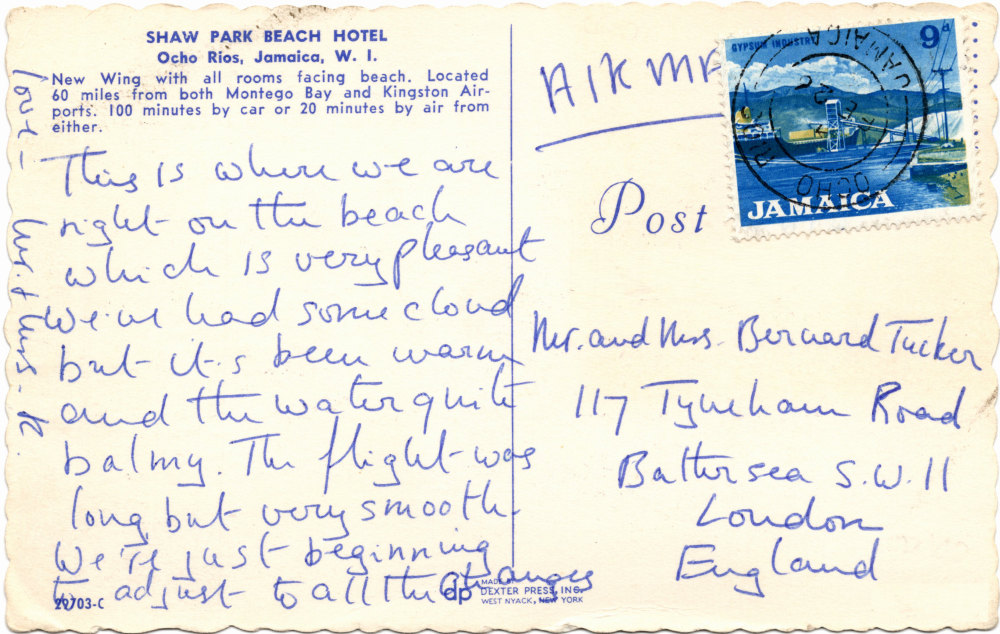 SHAW PARK BEACH HOTEL
Ocho Rios, Jamaica, W. I.
New Wing with all rooms facing beach. Located
60 miles from both Montego Bay and Kingston Air-
ports. 100 minutes by car or 20 minutes by air from
either.
This is where we are
right on the beach
which is very pleasant
We've had some cloud
but it's been warm
and the water quite
balmy. The flight was
long but very smooth.
We're just beginning
to adjust to all the changes
love – Mr. & Mrs. – K.
AIR MA
GYPSUM INDUSTRY
9d
JAMAICA
JAMAICA
OCHO
Post
Mr. and Mrs. Bernard Tucker
117 Tyneham Road
Battersea S.W.11
London
England
29703-C
dp
MADE BY
DEXTER PRESS, INC.
WEST NYACK, NEW YORK